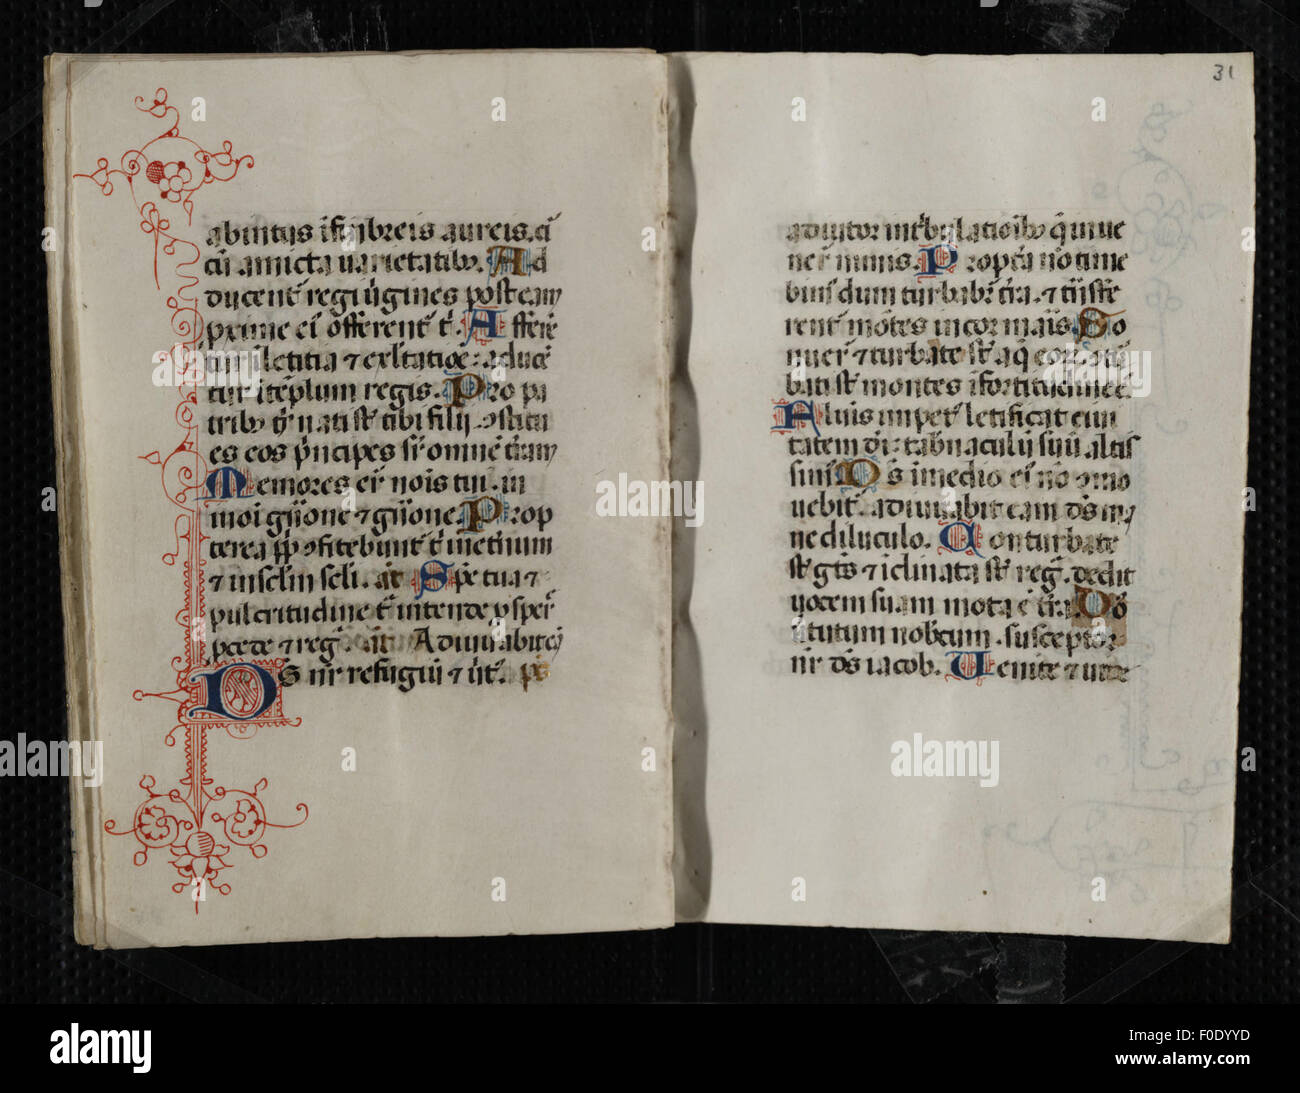 abintus i fi͂breis aureis. ci
cu͂ amicta uarietatib9. Ad
ducent᷑ regi u͂gines post eam
p̱xime ei9 offerent᷑ t᷑. Affere͂
tur i͂ letitia ⁊ exl᷑tatio͂e: aduce͂
tur i͂ te͂plum regis. Pro pa
trib9 t᷑ nati st᷑ tibi filij ꝯstitu
es eos p͂ncipes sr᷑ omne͂ t᷑ram
Memores er᷑ nois tui. in
moi g͂ione ⁊ g͂ione. Prop
terea pp ꝯfitebunt᷑ t᷑ inetnum
⁊ in sc͂lm sc͂li. an͂ Spe͂ tua ⁊
pulcritudine t᷑ intende ꝓsper᷑
pcede ⁊ reg᷑. an͂ Adiuuabit eā
Ds nr͂ refugiu͂ ⁊ u᷑t᷑. ps
31
adiutor in t᷑bulatioib9 q͂ inue
ner᷑ nimis. Propt᷑a no͂ time
bim9 dum turbabit᷑ t᷑ra. ⁊ t͂nsfe
rent᷑ mo͂tes in cor mar᷑is. So
nuer᷑ ⁊ turbate st᷑ aq͂ eor᷑. ꝯtu᷑
bati st᷑ montes i͂ fortitudine e᷑
Fluis impet9 letificat ciui
tatem di᷑: s͂c tabnaculu͂ suu͂ altis
sim9. Ds i͂ medio ei9 no͂ ꝯmo
uebit᷑. adiuuabit eam ds ma
ne diluculo. Conturbate
st᷑ ge͂tes ⁊ i͂clinata st᷑ reg᷑. dedit
uocem suam mota e͂ t᷑ra. Ds
u᷑tutum nobcum. susceptor
nr͂ ds iacob. Uenite ⁊ uide
alamy
Image ID: F0DYYD
www.alamy.com